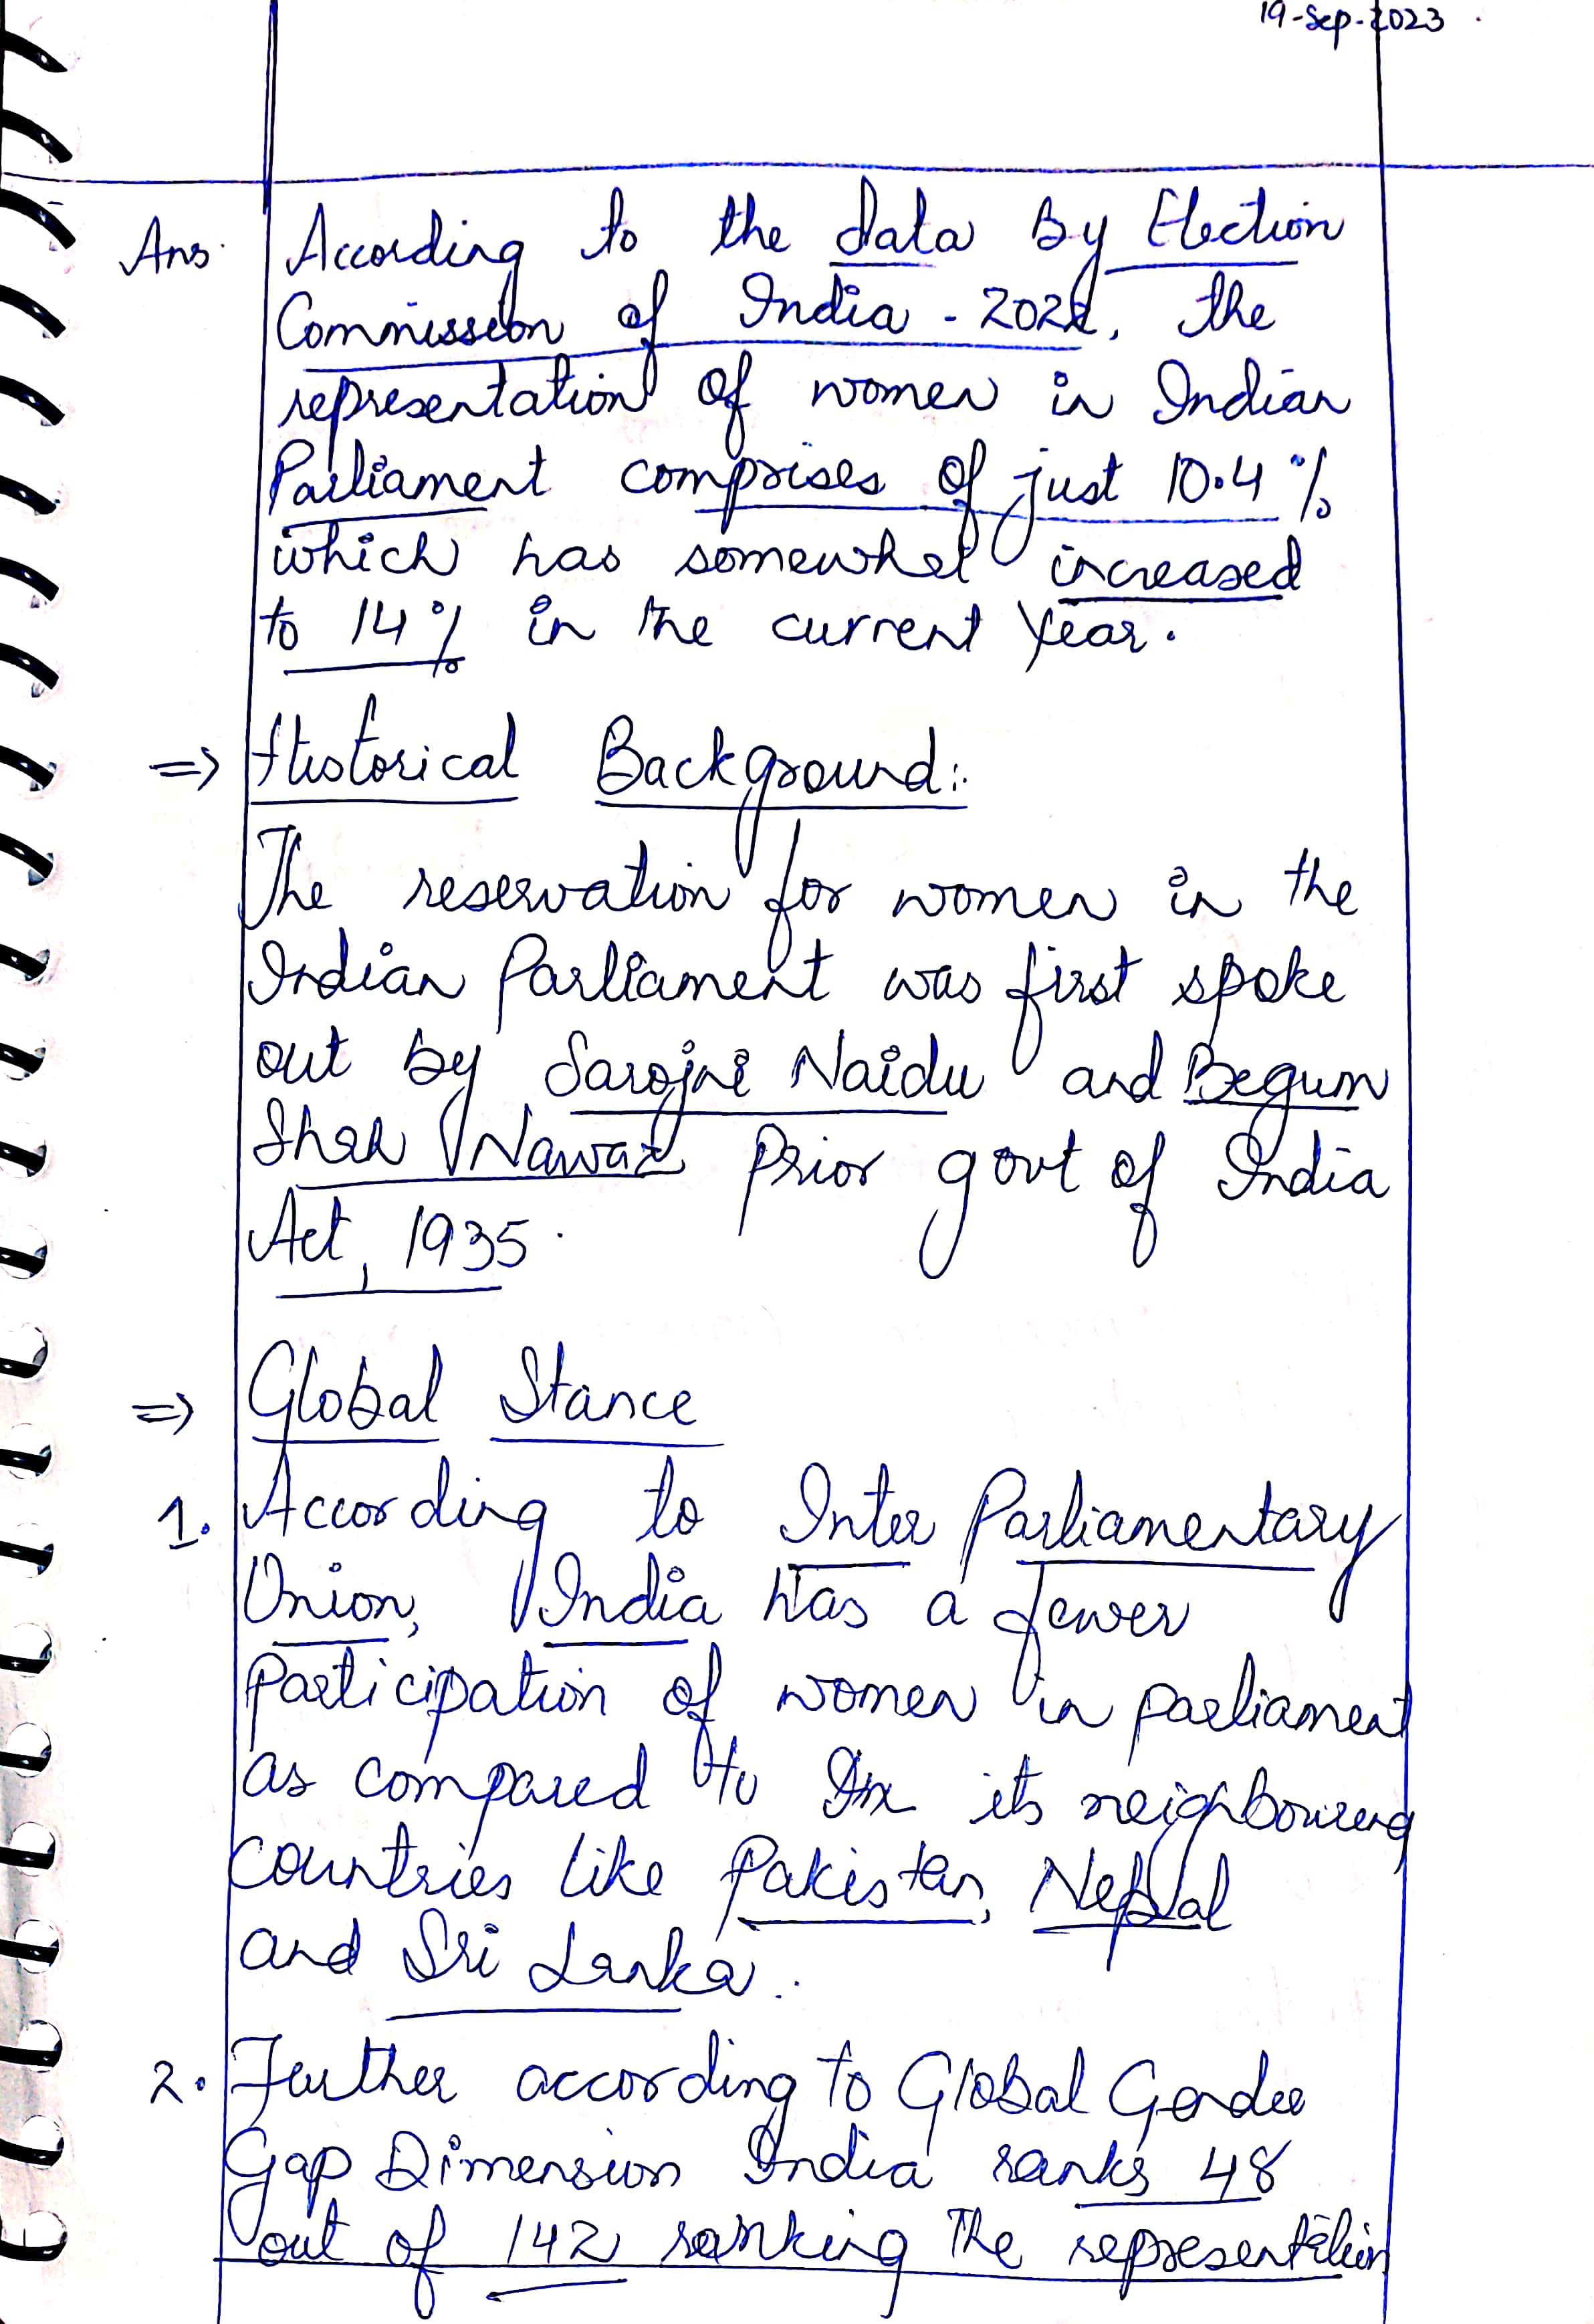 19-Sep-2023
Ans. According to the data By Election
Commission of India - 2022, the
representation of women in Indian
Parliament comprises of just 10.4%
which has somewhat increased
to 14% in the current year.
=> Historical Background:
The reservation for women in the
Indian Parliament was first spoke
out by Sarojni Naidu and Begum
Shah Nawaz prior govt of India
Act, 1935.
=> Global Stance
1. According to Inter Parliamentary
Union, India has a fewer
participation of women in parliament
as compared to its neighbouring
countries like Pakistan, Nepal
and Sri Lanka.
2. Further according to Global Gender
Gap Dimension India ranks 48
out of 142 ranking the representation